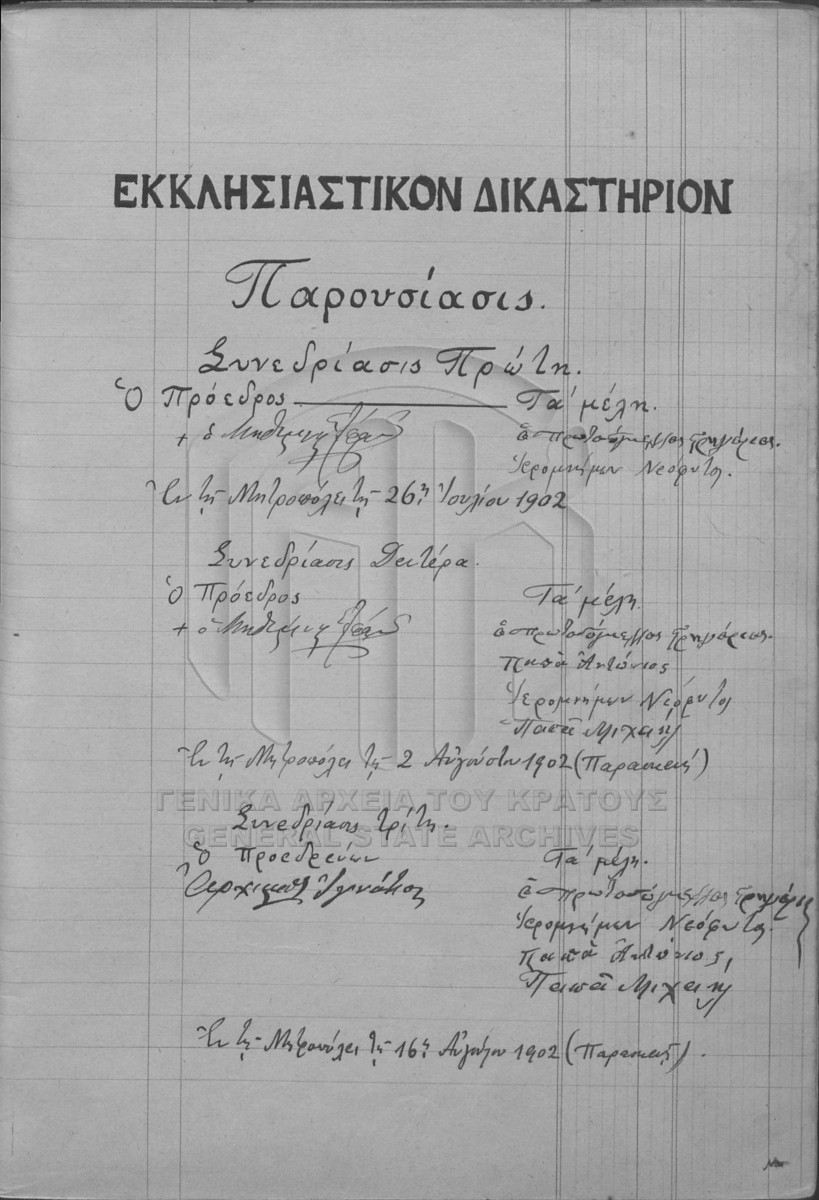 ΕΚΚΛΗΣΙΑΣΤΙΚΟΝ ΔΙΚΑΣΤΗΡΙΟΝ
Παρουσίασις.
Συνεδρίασις Πρώτη.
Ὁ Πρόεδρος Τὰ μέλη.
+ ὁ
ὁ Πρωτοσύγκελλος Γρηγόριος.
Ἱερομνήμων Νεόφυτος.
Ἐν τῇ Μητροπόλει τῇ 26ῃ Ἰουλίου 1902
Συνεδρίασις Δευτέρα.
Ὁ Πρόεδρος Τὰ μέλη.
+ ὁ
ὁ Πρωτοσύγκελλος Γρηγόριος.
Παπᾶ Ἀντώνιος
Ἱερομνήμων Νεόφυτος
Παπᾶ Μιχαὴλ
Ἐν τῇ Μητροπόλει τῇ 2 Αὐγούστου 1902 (Παρασκευή)
ΓΕΝΙΚΑ ΑΡΧΕΙΑ ΤΟΥ ΚΡΑΤΟΥΣ
GENERAL STATE ARCHIVES
Συνεδρίασις τρίτη.
Ὁ Προεδρεύων Τὰ μέλη.
ὁ Πρωτοσύγκελλος Γρηγόριος
Ἱερομνήμων Νεόφυτος.
Παπᾶ Ἀντώνιος,
Παπᾶ Μιχαὴλ
Ἐν τῇ Μητροπόλει τῇ 16ῃ Αὐγούστου 1902 (Παρασκευῇ).